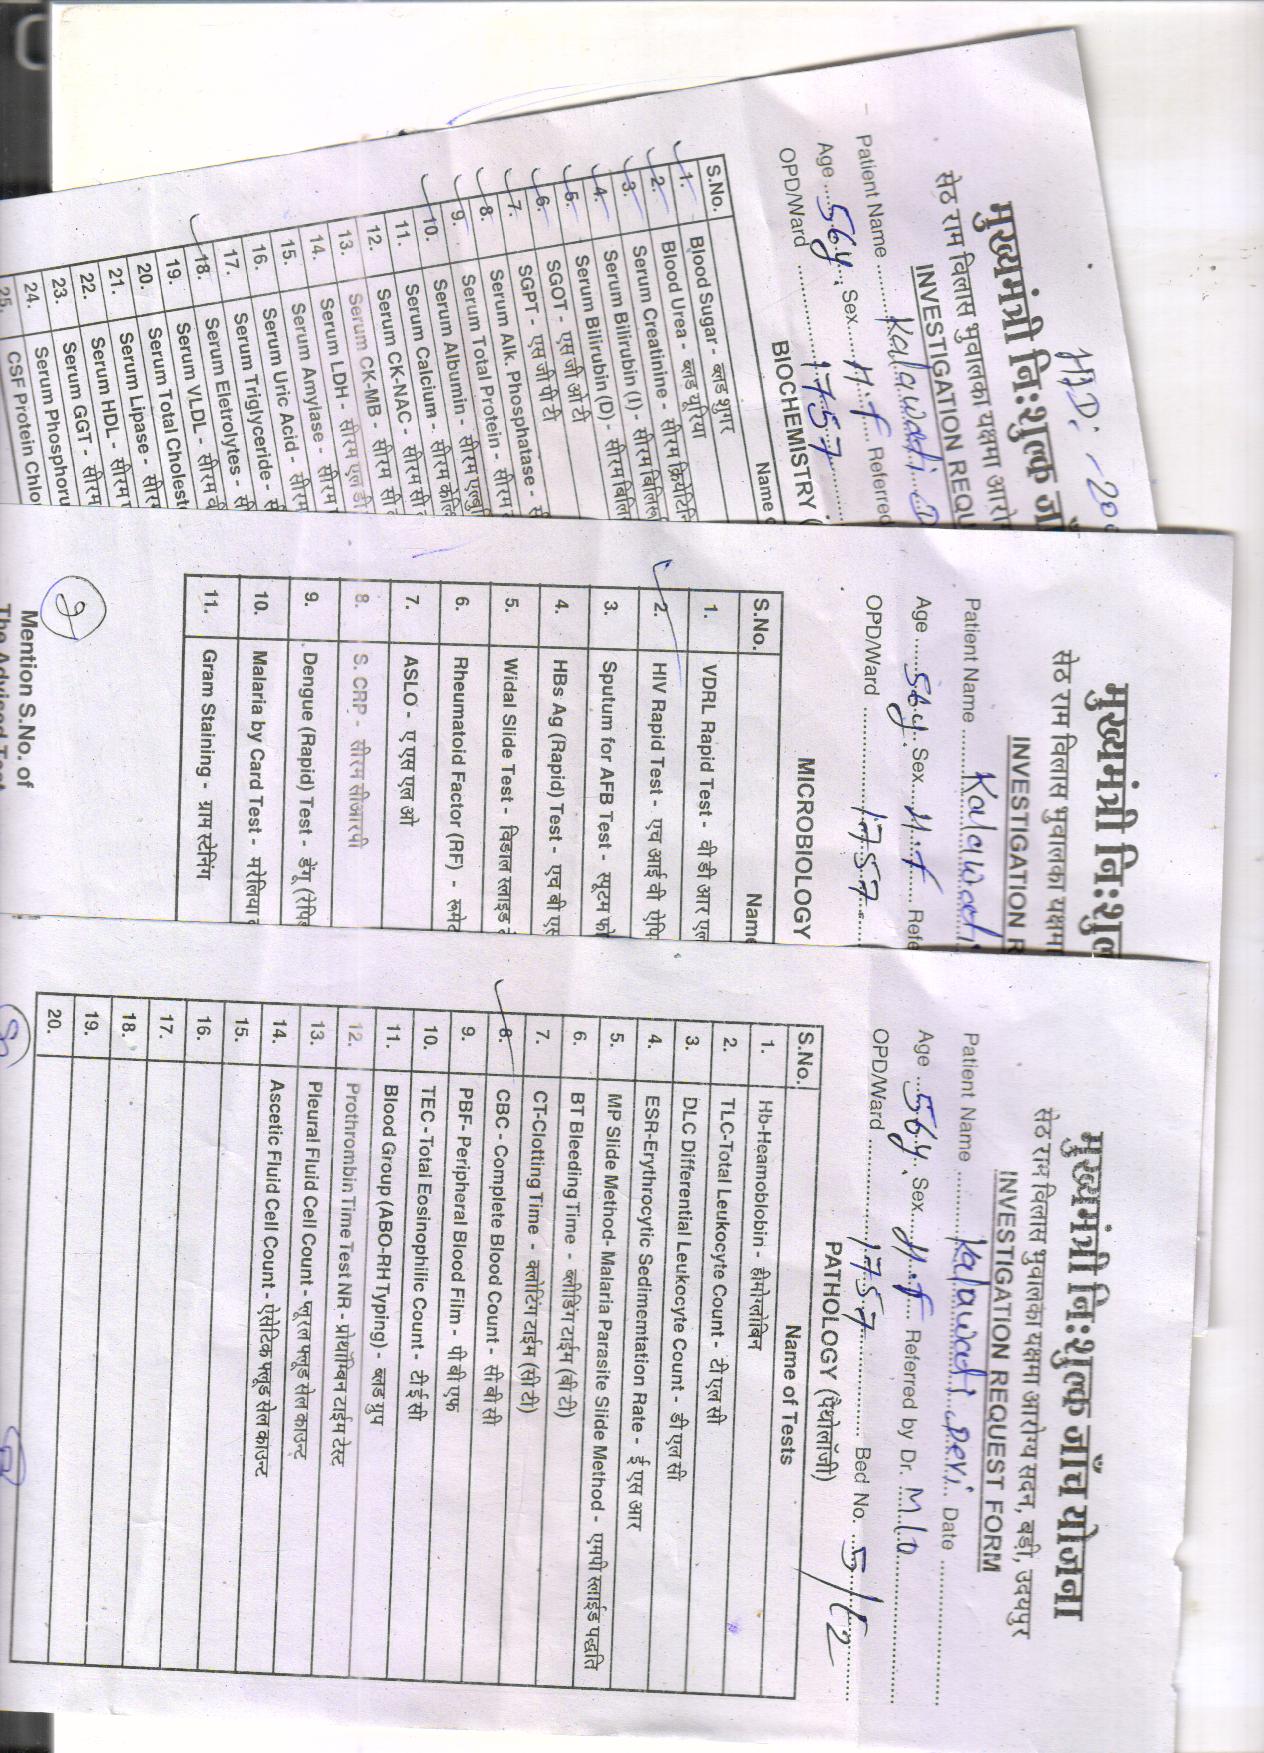 HDr -20
मुख्यमंत्री निःशुल्क जाँ
सेठ राम विलास भुवालका यक्षमा आरो
INVESTIGATION REQU
Patient Name ..........Kalawati D
Age ...56y. Sex....H.f.... Referred
OPD/Ward ..............1757..........
BIOCHEMISTRY (
S.No. Name o
1. Blood Sugar - ब्लड शुगर
2. Blood Urea - ब्लड यूरिया
3. Serum Creatinine - सीरम क्रियेटिनि
4. Serum Bilirubin (I) - सीरम बिलिरू
5. Serum Bilirubin (D) - सीरम बिलि
6. SGOT - एस जी ओ टी
7. SGPT - एस जी पी टी
8. Serum Alk. Phosphatase - सी
9. Serum Total Protein - सीरम
10. Serum Albumin - सीरम एल्बु
11. Serum Calcium - सीरम केल्शि
12. Serum CK-NAC - सीरम सी
13. Serum CK-MB - सीरम सी
14. Serum LDH - सीरम एल डी
15. Serum Amylase - सीरम
16. Serum Uric Acid - सीरम
17. Serum Triglyceride - स
18. Serum Eletrolytes - सी
19. Serum VLDL - सीरम वी
20. Serum Total Cholest
21. Serum Lipase - सीर
22. Serum HDL - सीरम
23. Serum GGT - सीरम
24. Serum Phosphoru
25. CSF Protein Chlo
मुख्यमंत्री निःशुल
सेठ राम विलास भुवालका यक्षमा
INVESTIGATION R
Patient Name ..........Kalawati
Age ......56y. Sex....H.f...... Refe
OPD/Ward ..............1757.....
MICROBIOLOGY
S.No. Name
1. VDRL Rapid Test - वी डी आर एल
2. HIV Rapid Test - एच आई वी रेपि
3. Sputum for AFB Test - स्पूटम फो
4. HBs Ag (Rapid) Test - एच बी एस
5. Widal Slide Test - विडाल स्लाइड टे
6. Rheumatoid Factor (RF) - रूमेट
7. ASLO - ए एस एल ओ
8. S. CRP - सीरम सीआरपी
9. Dengue (Rapid) Test - डेंगू (रेपिड
10. Malaria by Card Test - मरेलिया
11. Gram Staining - ग्राम स्टेनिंग
2
Mention S.No. of
The Advised Test
मुख्यमंत्री निःशुल्क जाँच योजना
सेठ राम विलास भुवालका यक्षमा आरोग्य सदन, बड़ी, उदयपुर
INVESTIGATION REQUEST FORM
Patient Name ..........Kalawati Devi... Date ....................
Age ...56y. Sex....H.f.... Referred by Dr. ...M/D....................
OPD/Ward ..............1757.............. Bed No. ...5/E2....
PATHOLOGY (पैथोलॉजी)
S.No. Name of Tests
1. Hb-Heamoblobin - हीमोग्लोबिन
2. TLC-Total Leukocyte Count - टी एल सी
3. DLC Differential Leukocyte Count - डी एल सी
4. ESR-Erythrocytic Sedimemtation Rate - ई एस आर
5. MP Slide Method- Malaria Parasite Slide Method - एमपी स्लाईड पद्धति
6. BT Bleeding Time - ब्लीडिंग टाईम (बी टी)
7. CT-Clotting Time - क्लोटिंग टाईम (सी टी)
8. CBC - Complete Blood Count - सी बी सी
9. PBF- Peripheral Blood Film - पी बी एफ
10. TEC -Total Eosinophilic Count - टी ई सी
11. Blood Group (ABO-RH Typing) - ब्लड ग्रुप
12. Prothrombin Time Test NR - प्रोथॉम्बिन टाईम टेस्ट
13. Pleural Fluid Cell Count - प्लूरल फ्लूड सेल काउन्ट
14. Ascetic Fluid Cell Count - ऐसेटिक फ्लूड सेल काउन्ट
15.
16.
17.
18.
19.
20.